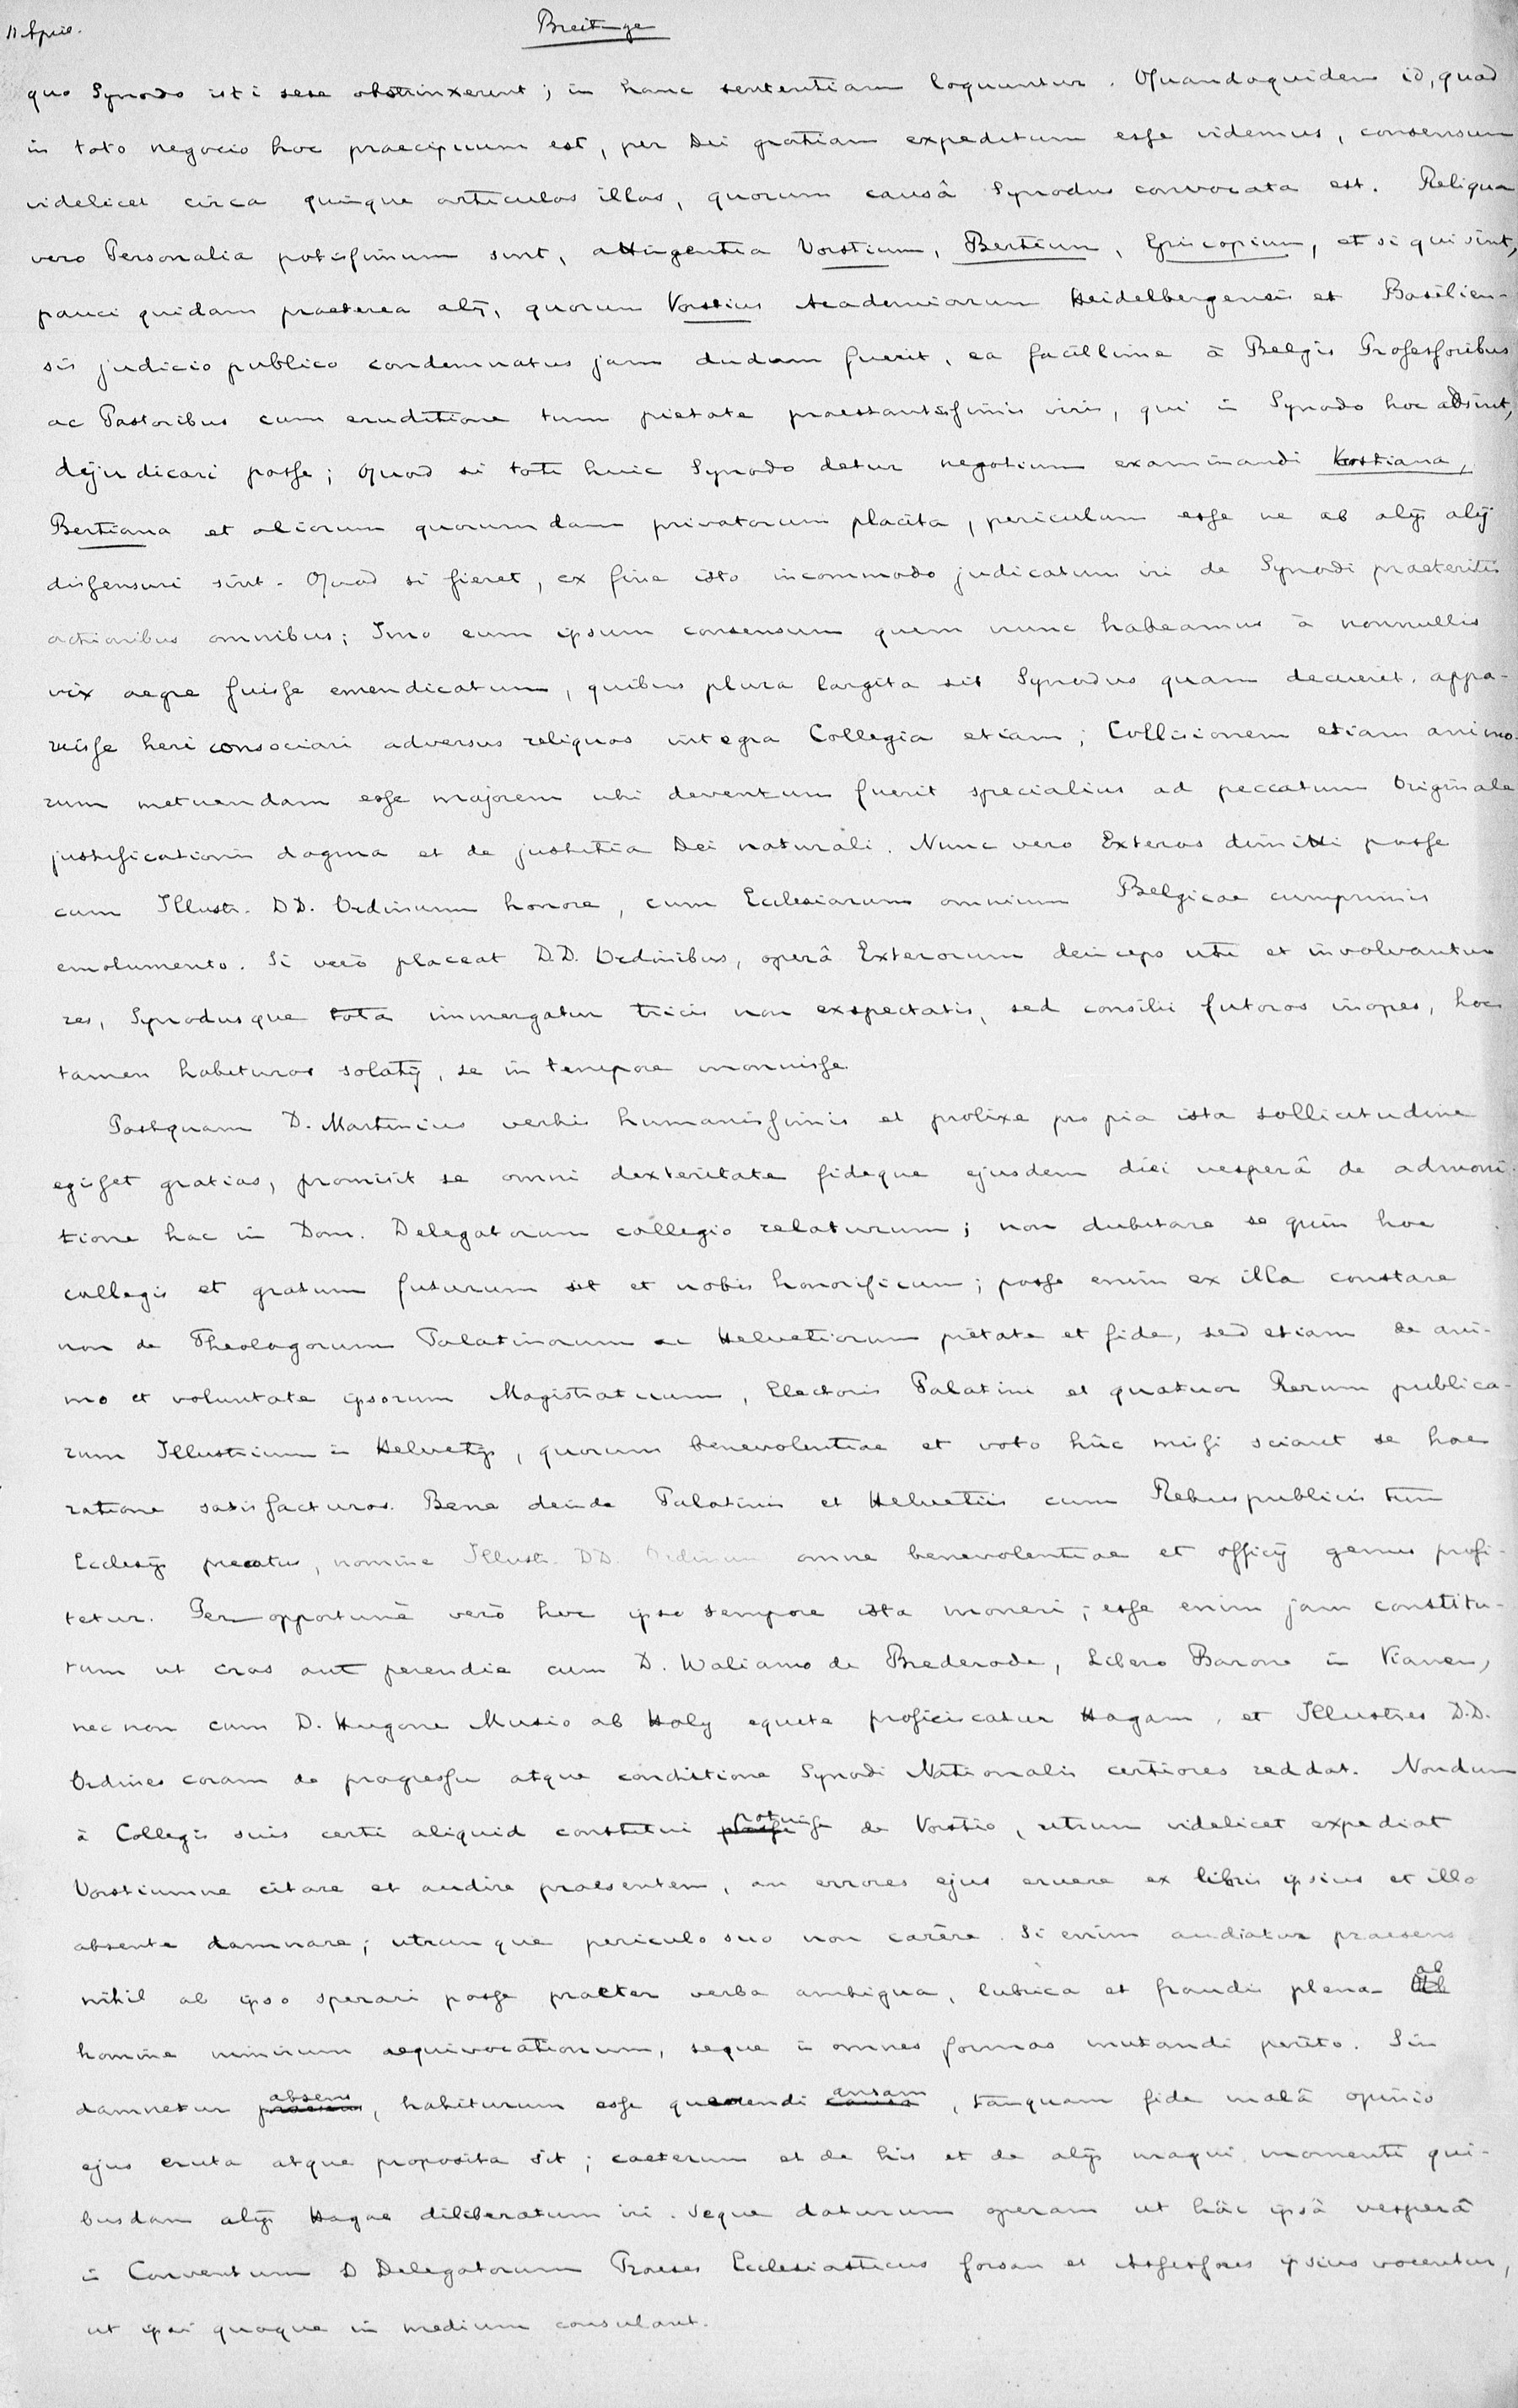 11 April.
Breitinge
quo Synodo isti sese obstrinxerunt; in hanc sententiam loquuntur. Quandoquidem id, quod
in toto negocio hoc praecipuum est, per Dei gratiam expeditum esse videmus, consensum
videlicet circa quinque articulos illos, quorum causâ Synodus convocata est. Reliqua
vero Personalia potissimum sint, attingentia Vorstium, Bertium, Episcopium, et si qui sint,
pauci quidam praeterea alij, quorum Vorstius Academiarum Heidelbergensis et Basilien-
sis judicio publico condemnatus jam dudum fuerit, ea facillime à Belgis Professoribus
ac Pastoribus cum eruditione tum pietate praestantissimis viris, qui in Synodo hoc adsint,
dijudicari posse; Quod si toti huic Synodo detur negotium examinandi Vorstiana,
Bertiana et aliorum quorundam privatorum placita, periculum esse ne ab alijs alij
dissensuri sint. Quod si fieret, ex fine isto incommodo judicatum iri de Synodi praeteritis
actionibus omnibus; Imo eum ipsum consensum quem nunc habeamus à nonnullis
vix aegre fuisse emendicatum, quibus plura largita sit Synodus quam decuerit. appa-
ruisse heri consociari adversus reliquos integra Collegia etiam; Collisionem etiam animo-
rum metuendam esse majorem ubi deventum fuerit specialius ad peccatum Originale
justificationis dogma et de justitia Dei naturali. Nunc vero Exteros dimitti posse
cum Illustr. DD. Ordinum honore, cum Ecclesiarum omnium Belgicae cumprimis
emolumento. Si verò placeat D.D. Ordinibus, operâ Exterorum deinceps uti et involvantur
res, Synodusque tota immergatur tricis non exspectatis, sed consilii futuros inopes, hoc
tamen habituros solatij, se in tempore monuisse.
Postquam D. Martinius verbis humanissimis et prolixe pro pia ista sollicitudine
egisset gratias, promisit se omni dexteritate fideque ejusdem diei vesperâ de admoni-
tione hac in Dom. Delegatorum collegio relaturum; non dubitare se quin hoc
collegis et gratum futurum sit et nobis honorificum; posse enim ex illa constare
non de Theologorum Palatinorum ac Helvetiorum pietate et fide, sed etiam de ani-
mo et voluntate ipsorum Magistratuum, Electoris Palatini et quatuor Rerum publica-
rum Illustrium in Helvetijs, quorum benevolentiae et voto hûc missi sciant se hac
ratione satisfacturos. Bene deinde Palatinis et Helvetiis cum Rebuspublicis tum
Ecclesijs precatus, nomine Illustr. DD. Ordinum omne benevolentiae et officij genus profi-
tetur. Per opportunè verò hoc ipso tempore ista moneri; esse enim jam constitu-
tum ut cras aut perendie cum D. Waliamo de Brederode, Libero Barone in Vianen,
nec non cum D. Hugone Musio ab Holy equite proficiscatur Hagam, et Illustres D.D.
Ordines coram de progressu atque conditione Synodi Nationalis certiores reddat. Nondum
à Collegis suis certi aliquid constitui potuisse de Vorstio, utrum videlicet expediat
Vorstiumne citare et audire praesentem, an errores ejus eruere ex libris ipsius et illo
absente damnare; utrumque periculo suo non carêre. Si enim audiatur praesens
nihil ab ipso sperari posse praeter verba ambigua, lubrica et fraudis plena ab
homine nimium aequivocationum, seque in omnes formas mutandi perito. Sin
damnetur absens, habiturum esse querendi ansam, tanquam fide malâ opinio
ejus eruta atque proposita sit; caeterum et de his et de alijs magni momenti qui-
busdam alijs Hagae diliberatum iri. Seque daturum operam ut hâc ipsâ vesperâ
in Conventum D Delegatorum Praeses Ecclesiasticus forsan et Assessores ipsius vocentur,
ut ipsi quoque in medium consulant.